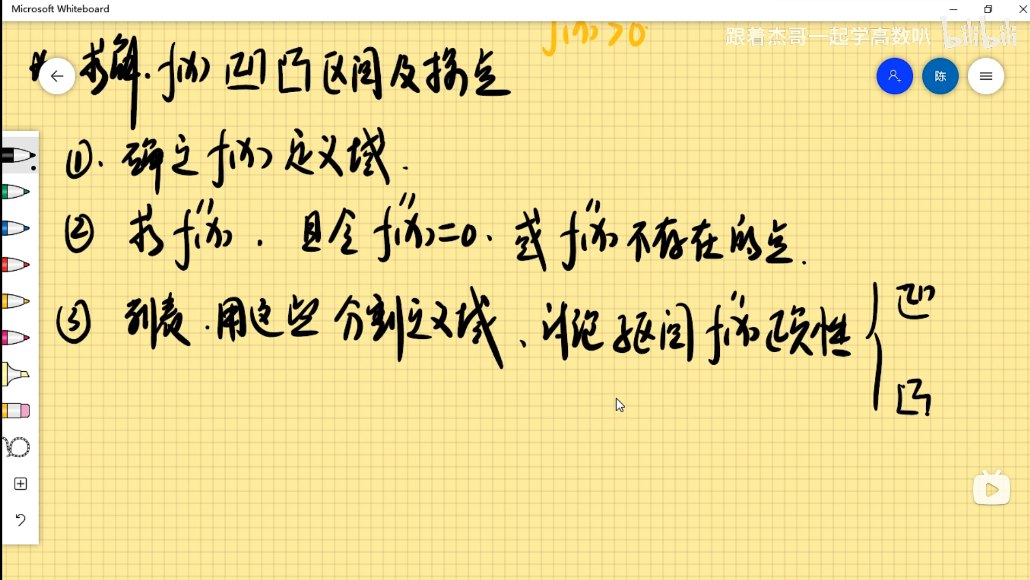 Microsoft Whiteboard
f(x)>0
跟着杰哥一起学高数叭 bilibili
求解. f(x) 凹凸区间及拐点
陈
①. 确定 f(x) 定义域.
② 求 f''(x). 且令 f''(x)=0. 或 f''(x) 不存在的点.
③ 列表. 用这些分割定义域、讨论 区间 f''(x) 正负性 { 凹
凸